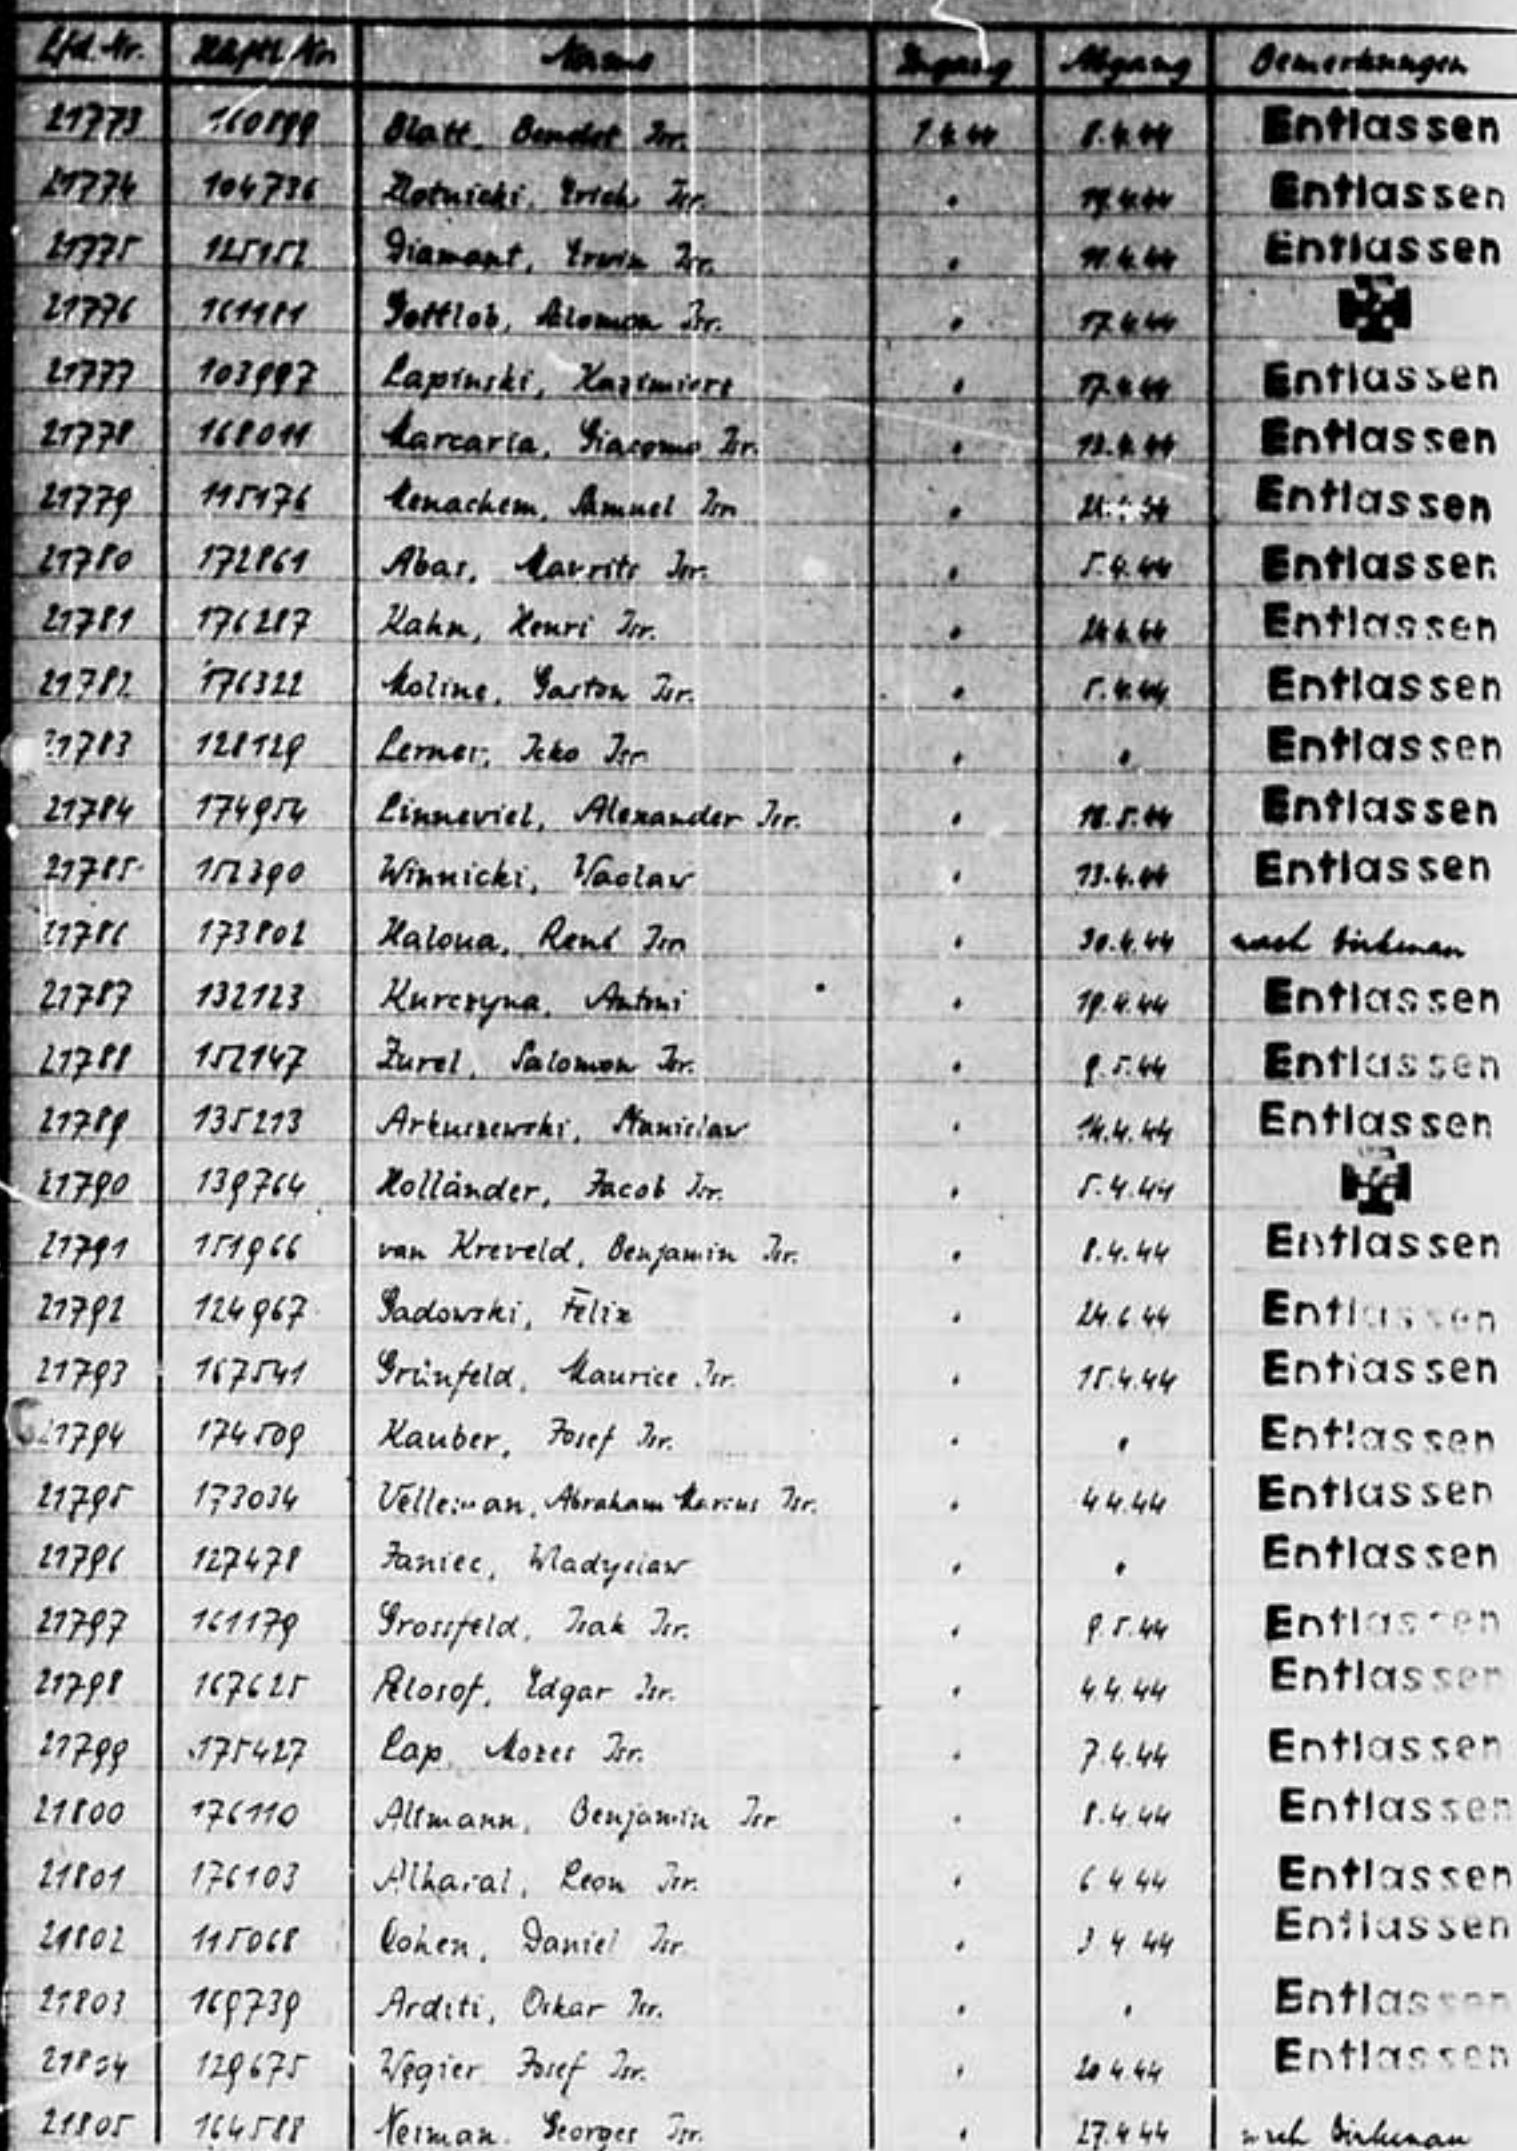 Lfd. Nr. Häftl. Nr. Name Zugang Abgang Bemerkungen
21773 160899 Blatt, Bendet Isr. 1.4.44 8.4.44 Entlassen
21774 104736 Zlotnicki, Erich Isr. " 19.4.44 Entlassen
21775 125152 Diamant, Erwin Isr. " 11.4.44 Entlassen
21776 161181 Gottlob, Salomon Isr. " 17.4.44
21777 103997 Lapinski, Kazimierz " 17.4.44 Entlassen
21778 168011 Marcaria, Giacomo Isr. " 12.4.44 Entlassen
21779 115176 Menachem, Samuel Isr. " Entlassen
21780 172861 Abas, Maurits Isr. " 5.4.44 Entlassen
21781 176287 Kahn, Henri Isr. " Entlassen
21782 176322 Moline, Gaston Isr. " 5.4.44 Entlassen
21783 128129 Lerner, Icko Isr. " " Entlassen
21784 174954 Linneviel, Alexander Isr. " 18.5.44 Entlassen
21785 152390 Winnicki, Waclaw " 13.4.44 Entlassen
21786 173802 Haloua, René Isr. " 30.4.44 nach Birkenau
21787 132123 Kurczyna, Antoni " 19.4.44 Entlassen
21788 152147 Zurel, Salomon Isr. " 9.5.44 Entlassen
21789 135213 Arkuszewski, Stanislaw " 14.4.44 Entlassen
21790 139764 Holländer, Jacob Isr. " 5.4.44
21791 151966 van Kreveld, Benjamin Isr. " 8.4.44 Entlassen
21792 124967 Sadowski, Felix " 24.6.44 Entlassen
21793 167541 Grünfeld, Maurice Isr. " 15.4.44 Entlassen
21794 174509 Kauber, Josef Isr. " " Entlassen
21795 173034 Velleman, Abraham Marcus Isr. " 4.4.44 Entlassen
21796 127478 Janiec, Wladyslaw " " Entlassen
21797 161179 Grossfeld, Isak Isr. " 9.5.44 Entlassen
21798 167625 Pelosof, Edgar Isr. " 4.4.44 Entlassen
21799 175427 Lap, Mozes Isr. " 7.4.44 Entlassen
21800 176110 Altmann, Benjamin Isr " 8.4.44 Entlassen
21801 176103 Alharal, Leon Isr. " 6.4.44 Entlassen
21802 115068 Cohen, Daniel Isr. " 3.4.44 Entlassen
21803 169739 Arditi, Oskar Isr. " " Entlassen
21804 129675 Węgier, Josef Isr. " 20.4.44 Entlassen
21805 164588 Neiman, Georges Isr. " 27.4.44 nach Birkenau